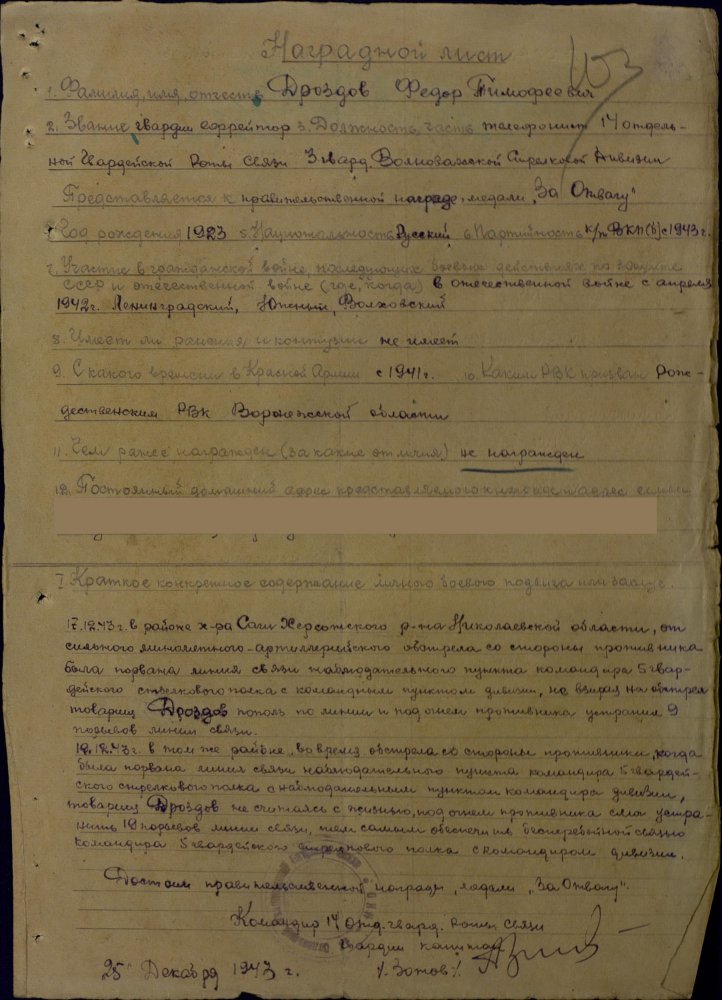 103
Наградной лист
1. Фамилия, имя, отчество Дроздов Федор Тимофеевич
2. Звание гвардии ефрейтор 3. Должность, часть телефонист 14 отдель-
ной Гвардейской Роты Связи 3 гвард. Волновахской Стрелковой дивизии
Представляется к правительственной награде, медали "За Отвагу"
4. Год рождения 1923 5. Национальность Русский 6. Партийность к/п ВКП(б) с 1943 г.
7. Участие в гражданской войне, последующих боевых действиях по защите
СССР и отечественной войне (где, когда) в отечественной войне с апреля
1942 г. Ленинградский, Южный, Волховский
8. Имеет ли ранения и контузии не имеет
9. С какого времени в Красной Армии с 1941 г. 10. Каким РВК призван Рож-
дественским РВК Воронежской области
11. Чем ранее награжден (за какие отличия) не награжден
12. Постоянный домашний адрес представляемого к награде и адрес семьи
I. Краткое конкретное содержание личного боевого подвига или заслуг.
17.12.43 г. в районе х-ра Саги Херсонского р-на Николаевской области, от
сильного минометного-артиллерийского обстрела со стороны противника
была порвана линия связи наблюдательного пункта командира 5 гвар-
дейского стрелкового полка с командным пунктом дивизии, не взирая на обстрел
товарищ Дроздов пополз по линии и под огнем противника устранил 9
порывов линии связи.
12.43 г. в том же районе, во время обстрела со стороны противника, когда
была порвана линия связи наблюдательного пункта командира 5 гвардей-
ского стрелкового полка с наблюдательным пунктом командира дивизии,
товарищ Дроздов не считаясь с жизнью, под огнем противника смог устра-
нить порывов линии связи, тем самым обеспечив бесперебойной связью
командира 5 гвардейского стрелкового полка с командиром дивизии.
Достоин правительственной награды, медали "За Отвагу".
Командир 14 отд. гвард. Роты Связи
гвардии капитан
25 Декабря 1943 г. /. Зотов /.